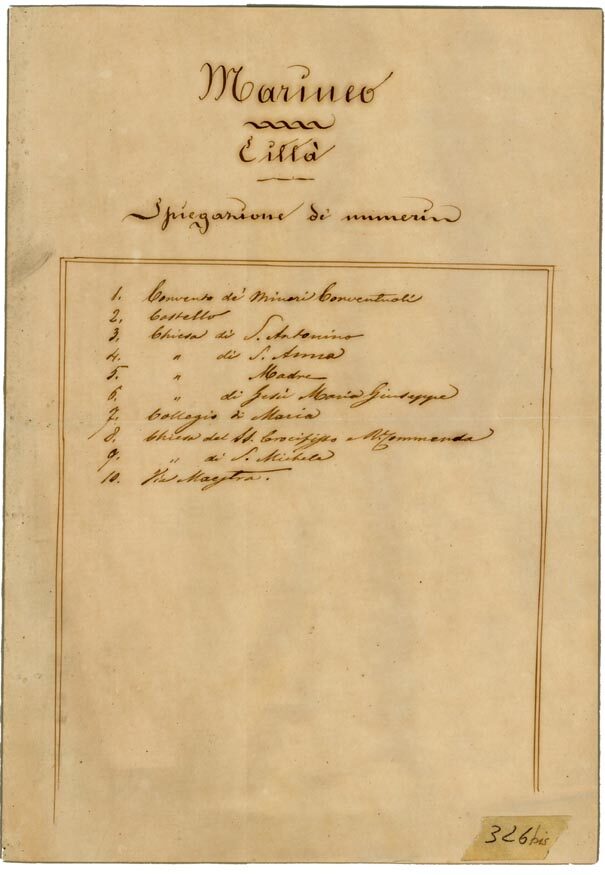 Marineo
Città
Spiegazione di numerin
1. Convento de' Minori Conventuali
2. Castello
3. Chiesa di S. Antonino
4. " di S. Anna
5. " Madre
6. " di Gesù Maria Giuseppe
7. Collegio di Maria
8. Chiesa del SS. Crocifisso e
9. " di S. Michele
10. Via Maestra.
326 bis